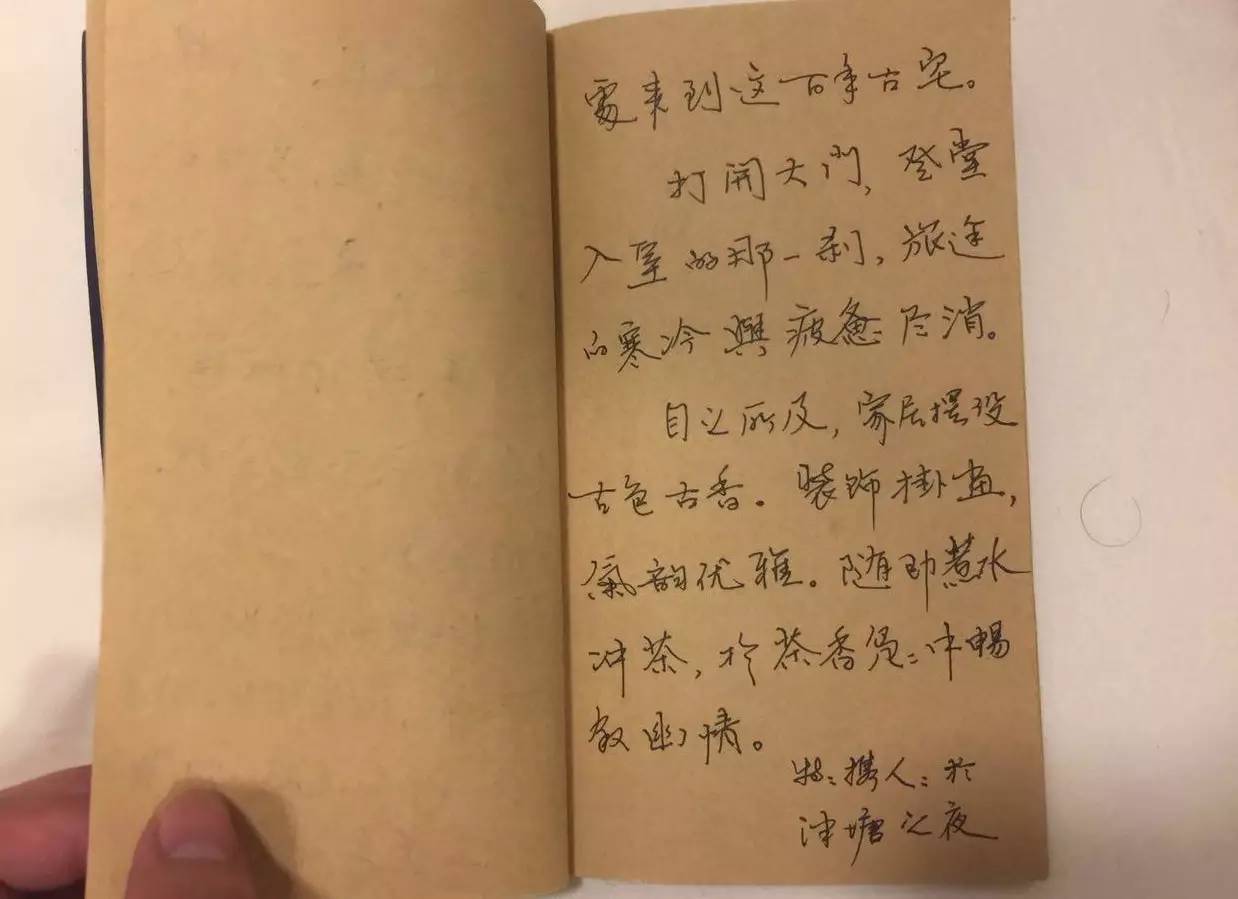 来到这百年古宅。
打開大門，登堂
入室的那一刹，旅途
的寒冷與疲惫尽消。
目之所及，家居摆设
古色古香。装饰掛畫，
氣韵优雅。随即煮水
冲茶，於茶香袅=中暢
叙幽情。
特=携人=於
泮塘之夜